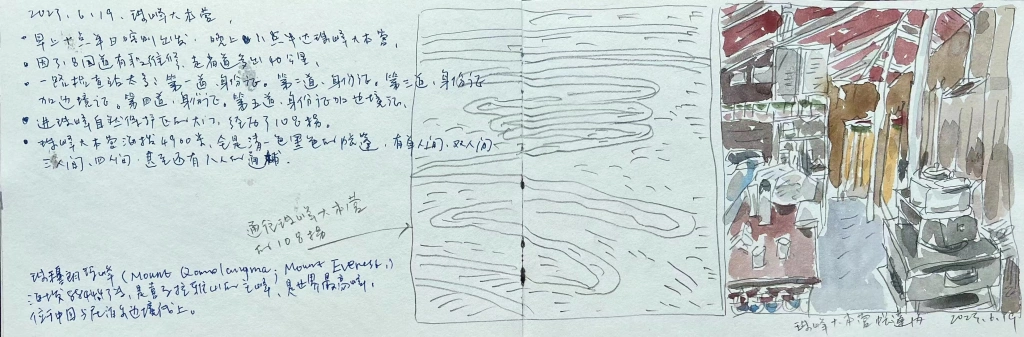 2023.6.19. 珠峰大本营.
• 早上十点半日喀则出发, 晚上八点半达珠峰大本营,
• 因318国道有段维修, 走省道多出40公里,
• 一路检查站太多: 第一道, 身份证. 第二道, 身份证, 第三道, 身份证
加边境证. 第四道, 身份证, 第五道, 身份证加边境证.
• 进珠峰自然保护区的大门, 经历了108拐.
• 珠峰大本营海拔4900米, 全是清一色黑色的帐篷, 有单人间, 双人间
三人间, 四人间, 甚至还有八人的通铺.
通往珠峰大本营
的108拐
珠穆朗玛峰 (Mount Qomolangma; Mount Everest,)
海拔8848米, 是喜马拉雅山的主峰, 是世界最高峰,
位于中国与尼泊尔边境线上.
珠峰大本营帐篷内 2023.6.19